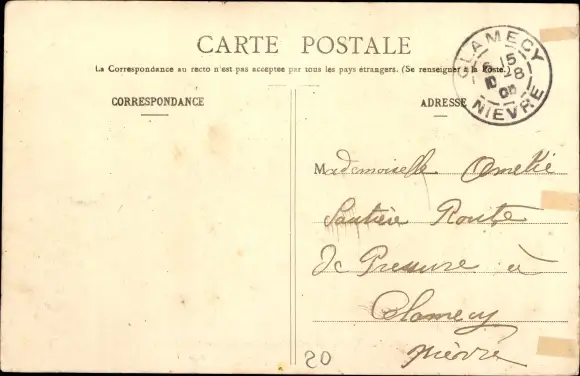 CARTE POSTALE
La Correspondance au recto n'est pas acceptée par tous les pays étrangers. (Se renseigner à la Poste)
CORRESPONDANCE
ADRESSE
CLAMECY
15
28
NIEVRE
Mademoiselle Amelie
Route
De Pressure à
Clamecy
Nièvre
20